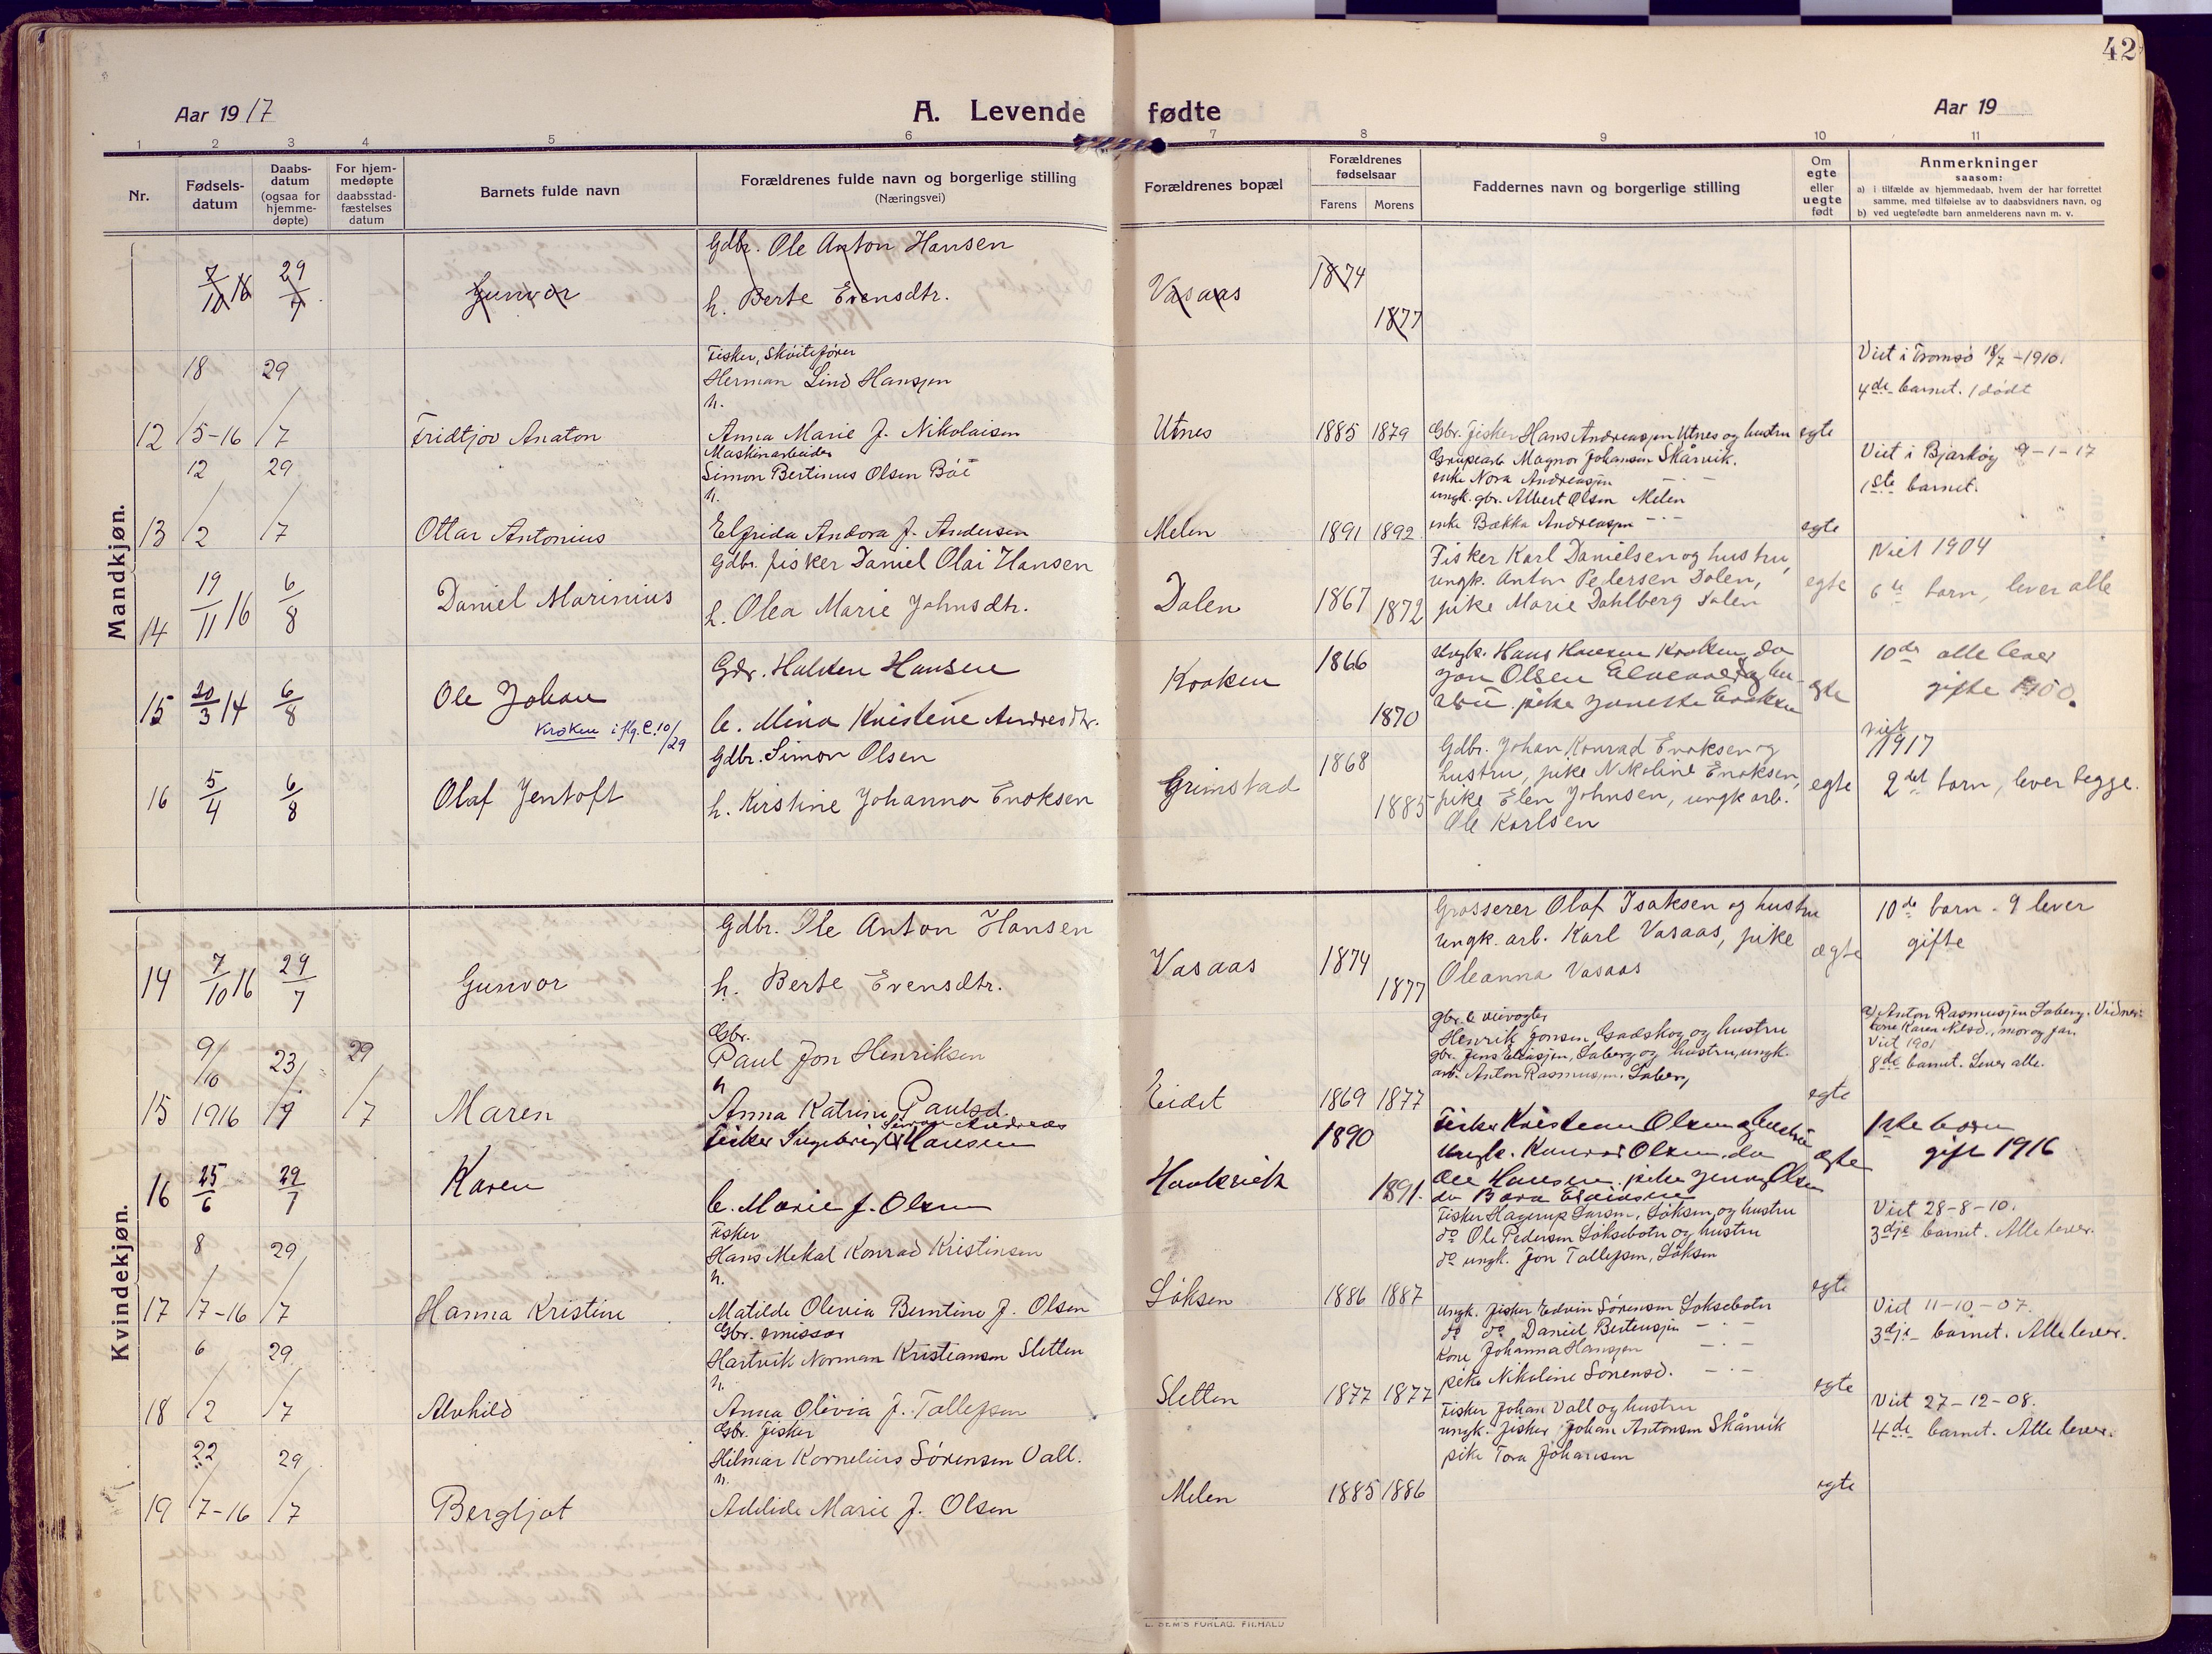 42
Aar 1917
A. Levende
fødte
Aar 19
1 2 3 4 5 6 7 8 9 10 11
Nr.
Fødsels-
datum
Daabs-
datum
(ogsaa for
hjemme-
døpte)
For hjem-
medøpte
daabsstad-
fæstelses
datum
Barnets fulde navn
Forældrenes fulde navn og borgerlige stilling
(Næringsvei)
Forældrenes bopæl
Forældrenes
fødselsaar
Farens Morens
Faddernes navn og borgerlige stilling
Om
egte
eller
uegte
født
Anmerkninger
saasom:
a) i tilfælde av hjemmedaab, hvem der har forrettet
samme, med tilføielse av to daabsvidners navn, og
b) ved uegtefødte barn anmelderens navn m. v.
Mandkjøn.
7/10 16 29/7 Gunvor
Gdbr. Ole Anton Hansen
h. Berte Evensdtr.
Vasaas 1874 1877
12 18/5-16 29/7 Fridtjov Anaton
Fisker, Skøitefører
Herman Lind Hansen
h.
Anna Marie J. Nikolaisen
Utnes 1885 1879
Gbr. fisker Hans Andreassen Utnes og hustru
egte
Viet i Tromsø 18/7-1910.
4de barnet. 1 dødt
13 12/2 29/7 Ottar Antonius
Maskinarbeider
Simon Bertinus Olsen Bøe
h.
Elfrida Andora J. Andersen
Melen 1891 1892
Grubearb Magnor Johansen Skårvik.
enke Nora Andreassen
ungk. gbr. Albert Olsen Melen
enke Bækka Andreassen
egte
Viet i Bjarkøy 9-1-17
1ste barnet.
14 19/11 16 6/8 Daniel Marinius
Gdbr. fisker Daniel Olai Hansen
h. Olea Marie Johnsdtr.
Dalen 1867 1872
Fisker Karl Danielsen og hustru,
ungk. Anton Pedersen Dalen,
pike Marie Dahlberg Dalen
egte
Viet 1904
6te barn, lever alle
15 20/3 14 6/8 Ole Johan
Kroken iflg. C. 10/29
Gdr. Halvten Hansen
h. Mina Kristine Andresdtr.
Kroken 1866 1870
Ungk. Hans Hansen Kroken, do
Jon Olsen
pike
egte
10de alle lever
gifte 1900.
16 5/4 6/8 Olaf Jentoft
Gdbr. Simon Olsen
h. Kirstine Johanna Enoksen
Grimstad 1868 1885
Gdbr. Johan Konrad Enoksen og
hustru, pike Nikoline Enoksen,
pike Elen Johnsen, ungk arb.
Ole Karlsen
egte
viet
1917
2det barn, lever begge.
Kvindekjøn.
14 7/10 16 29/7 Gunvor
Gdbr. Ole Anton Hansen
h. Berte Evensdtr.
Vasaas 1874 1877
Grosserer Olaf Isaksen og hustru
ungk. arb. Karl Vasaas, pike
Oleanna Vasaas
ægte
10de barn. 9 lever
gifte
15 9/10 1916 23/ 29/7 Maren
Gbr.
Paul Jon Henriksen
h
Anna Katrine Paulsd.
Eidet 1869 1877
Henrik Jonsen, Gradskog og hustru
gbr. Jens Eliassen, Laberg og hustru, ungk.
arb. Anton Rasmussen. Laberg
egte
a) Anton Rasmussen Laberg. Vidner:
kone Karen Nilsd., mor og far.
Viet 1901
8de barnet. Lever alle.
16 25/6 29/7 Karen
Fisker Ingebrigt Hansen
h. Marie J. Olsen
1890 1891.
Fisker Kristian Olsen og hustru
Ungk. Olsen do
Ole Hansen. pike Jenny Olsen
egte
1ste barn
gift 1916
17 8/7-16 29/7 Hanna Kristine
Fisker
Hans Mekal Konrad Kristinsen
h.
Matilde Olevia Berntine J. Olsen
Løksen 1886 1887
Fisker Hagerup Larsen, Løksen, og hustru
do Ole Pedersen Løksebotn og hustru
do ungk. Jon Tollefsen, Løksen
egte
Viet 28-8-10.
3dje barnet. Alle lever.
18 6/2 29/7 Alvhild
Gbr. emissær
Hartvik Norman Kristiansen Sletten
h.
Anna Olivia J. Tollefsen
Sletten 1877 1877
ungk. fisker Edvin Sørensen Løksebotn
do do Daniel Bertensen
Kone Johanna Hansen
pike Nikoline Sørensd.
egte
Viet 11-10-07.
3dje barnet. Alle lever.
19 22/7-16 29/7 Bergljot
Gbr. fisker
Hilmar Kornelius Sørensen Vall.
h.
Adelide Marie J. Olsen
Melen 1885 1886
Fisker Johan Vall og hustru
ungk. fisker Johan Antonsen Skårvik
pike Tora Johansen
egte
Viet 27-12-08.
4de barnet. Alle lever.
E. SEM'S FORLAG, FR.HALD